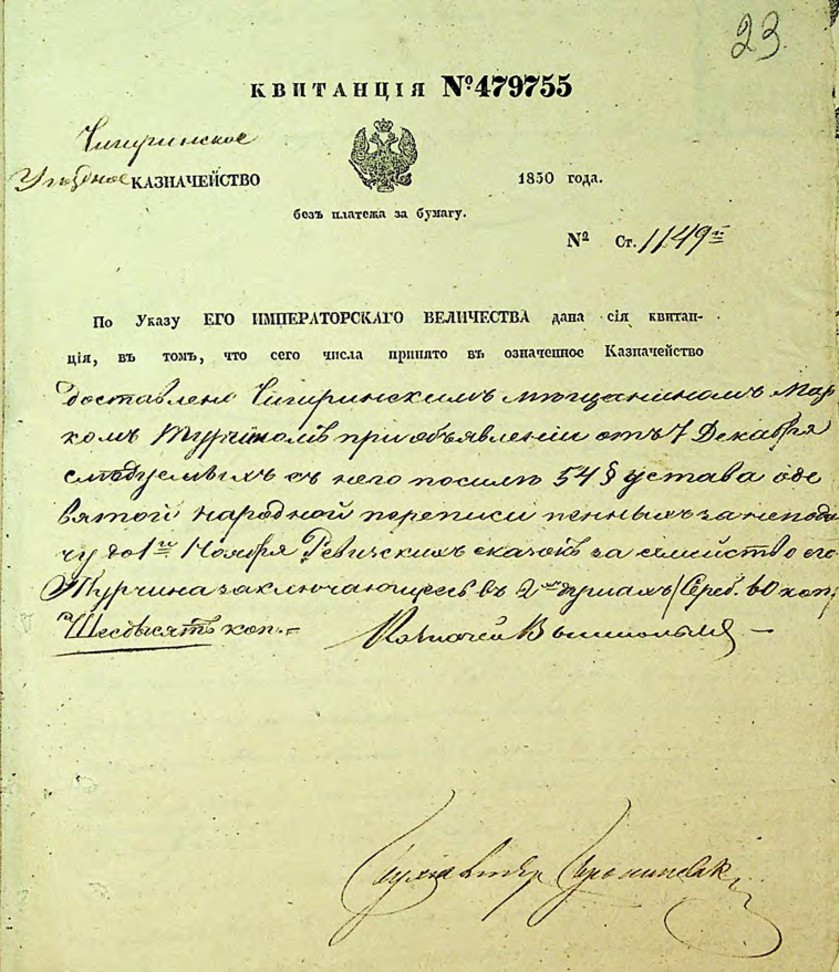 23.
КВИТАНЦІЯ №479755
Чигиринское
Уѣздное КАЗНАЧЕЙСТВО
1850 года.
безъ платежа за бумагу.
№ Ст. 1149й
По Указу ЕГО ИМПЕРАТОРСКАГО ВЕЛИЧЕСТВА дана сія квитан-
ція, въ томъ, что сего числа принято въ означенное Казначейство
доставлен Чигиринскимъ мѣщаниномъ Мар
комъ Турчиномъ при объявленіи отъ 7 Декабря
слѣдуемыхъ съ него посилѣ 54 § устава оде
вятой народной переписи пенныхъ за непода
чу до 1го Ноября Ревизскихъ сказокъ за семейство его
Турчина заключающееся въ 2хъ душахъ/Сереб. 60 коп:
Шесдѣсятъ коп.=
Казначей
Бухгалтер